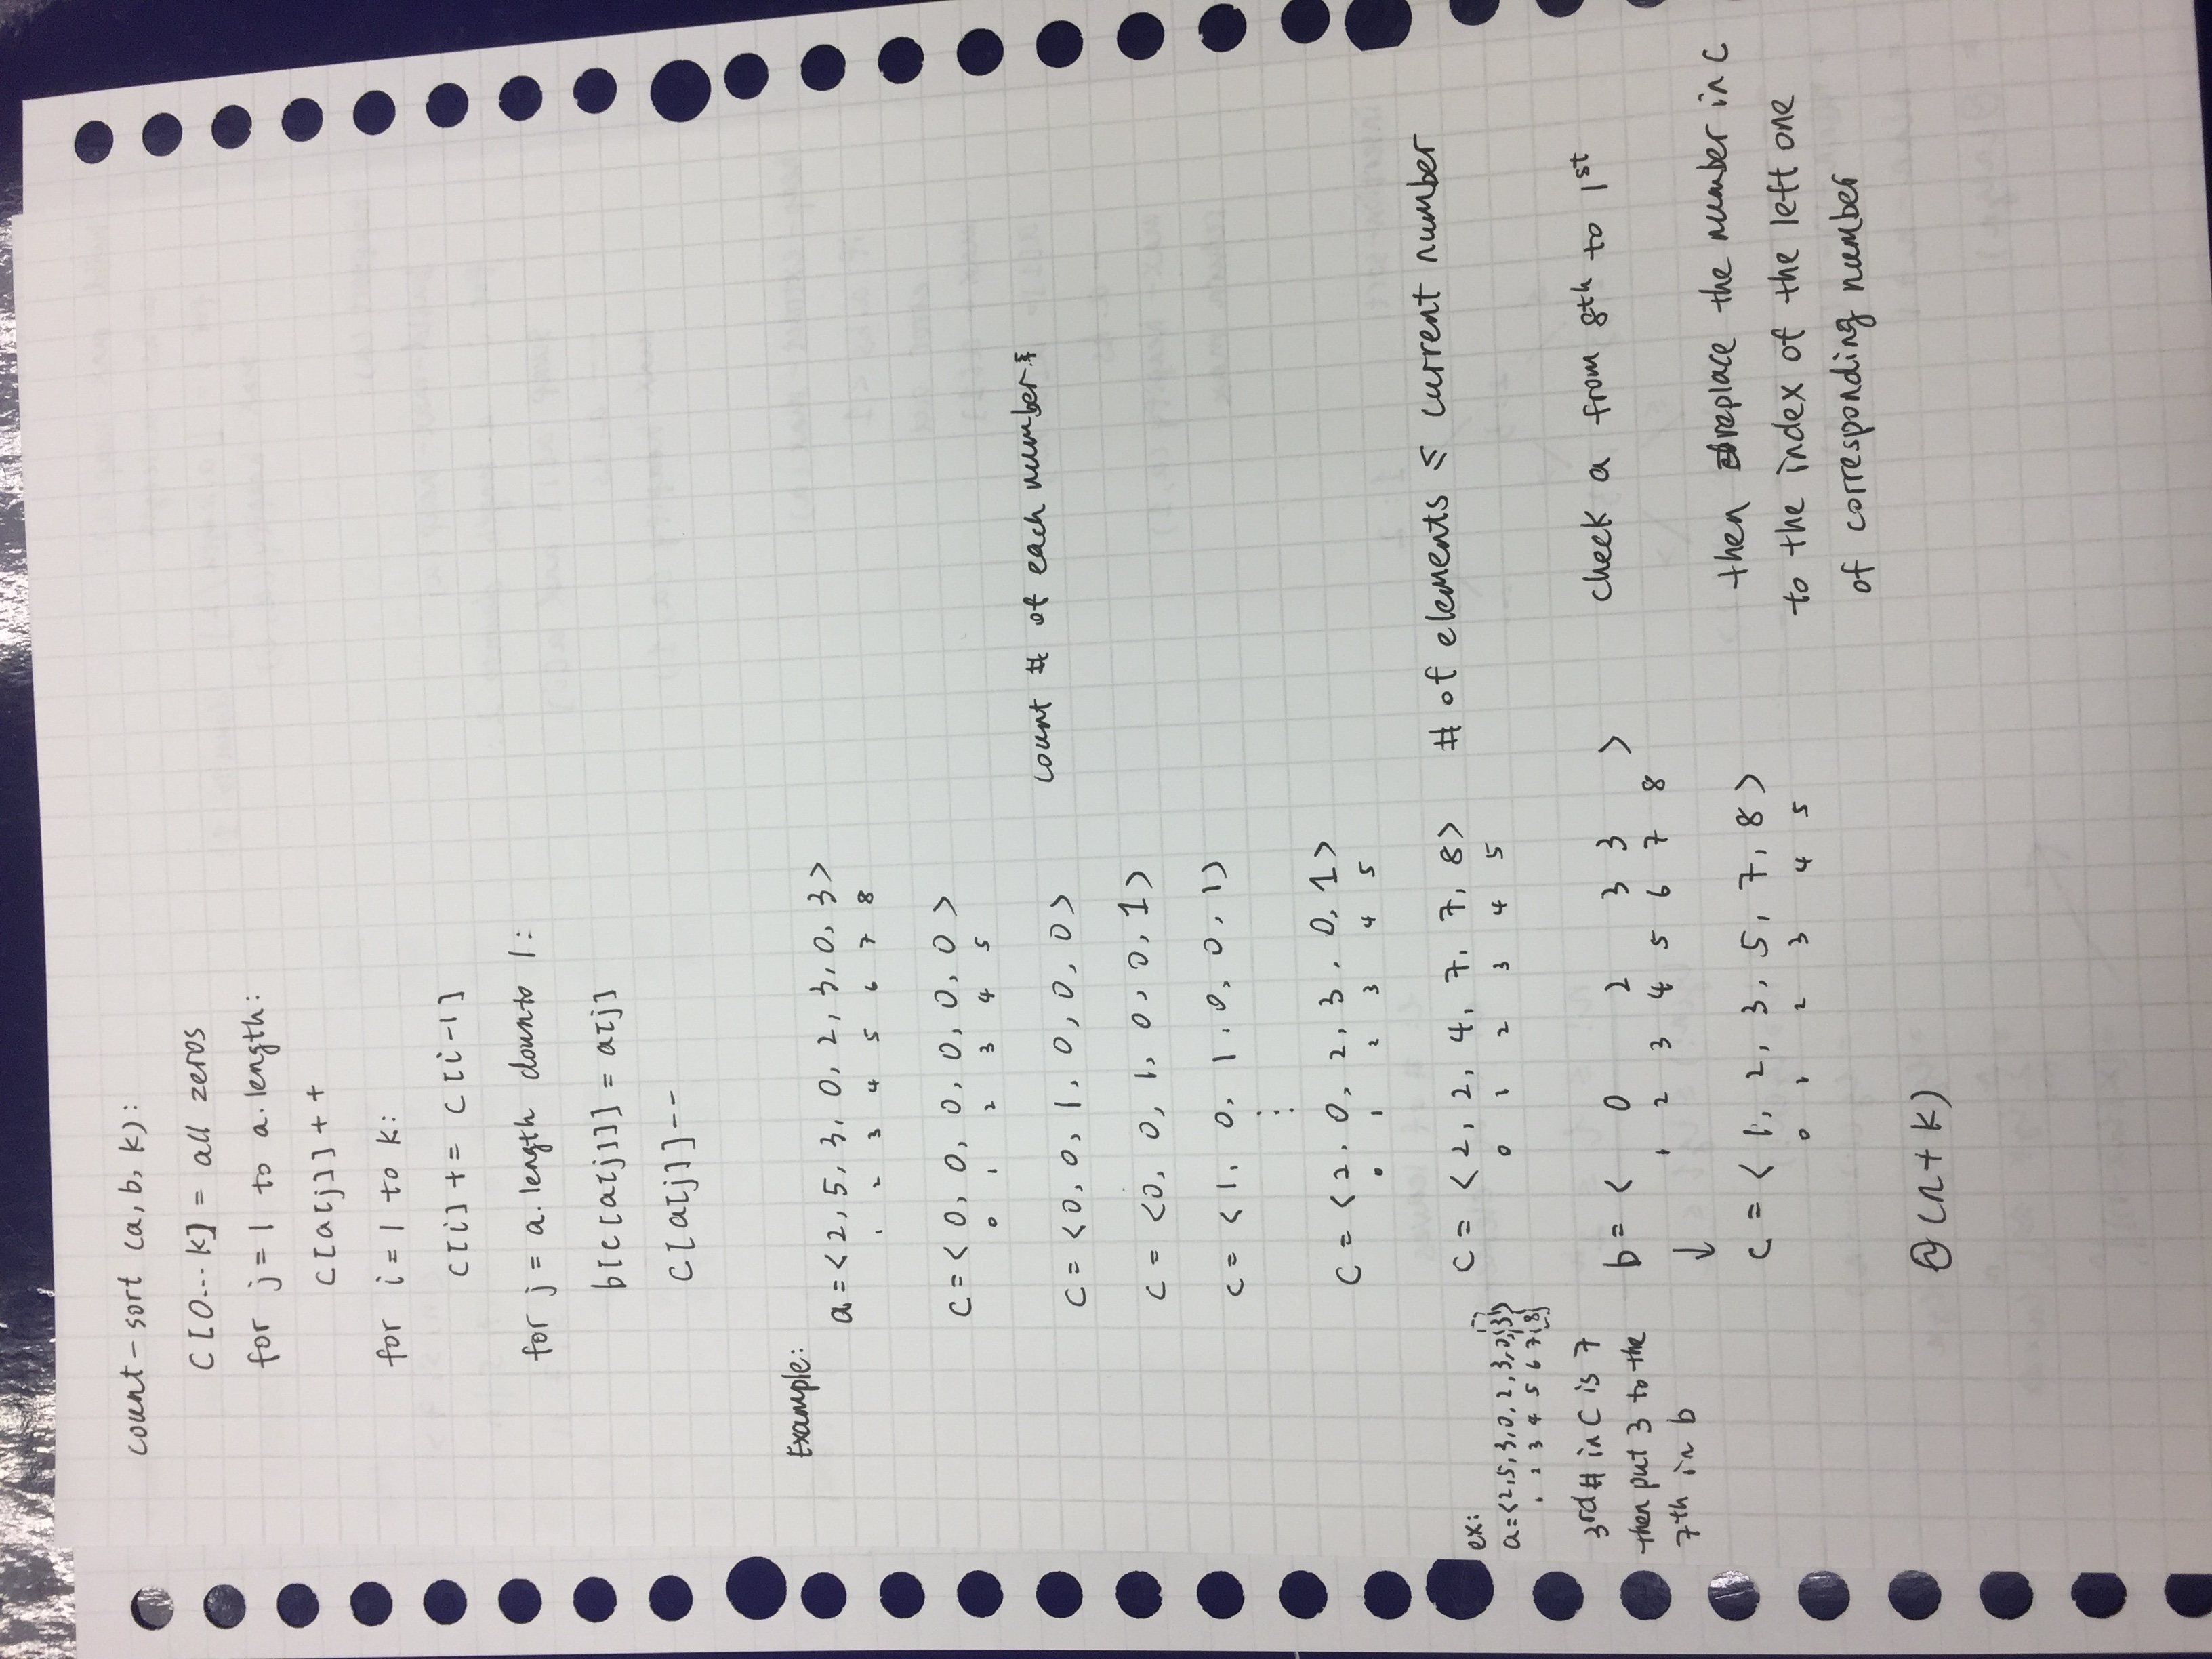 count-sort (a, b, k):
C[0...k] = all zeros
for j = 1 to a.length:
C[a[j]]++
for i = 1 to k:
C[i] += C[i-1]
for j = a.length downto 1:
b[c[a[j]]] = a[j]
C[a[j]]--
Example:
a = <2, 5, 3, 0, 2, 3, 0, 3>
1 2 3 4 5 6 7 8
C = <0, 0, 0, 0, 0, 0>
0 1 2 3 4 5
count # of each number
C = <0, 0, 1, 0, 0, 0>
C = <0, 0, 1, 0, 0, 1>
C = <1, 0, 1, 0, 0, 1>
⋮
C = <2, 0, 2, 3, 0, 1>
0 1 2 3 4 5
C = <2, 2, 4, 7, 7, 8> # of elements ≤ current number
0 1 2 3 4 5
ex:
a = <2,5,3,0,2,3,0,3>
1 2 3 4 5 6 7 8
3rd # in C is 7
then put 3 to the
7th in b
b = < 0 2 3 3 > check a from 8th to 1st
1 2 3 4 5 6 7 8
↓
C = <1, 2, 3, 5, 7, 8>
0 1 2 3 4 5
then replace the number in C
to the index of the left one
of corresponding number
Θ(n+k)